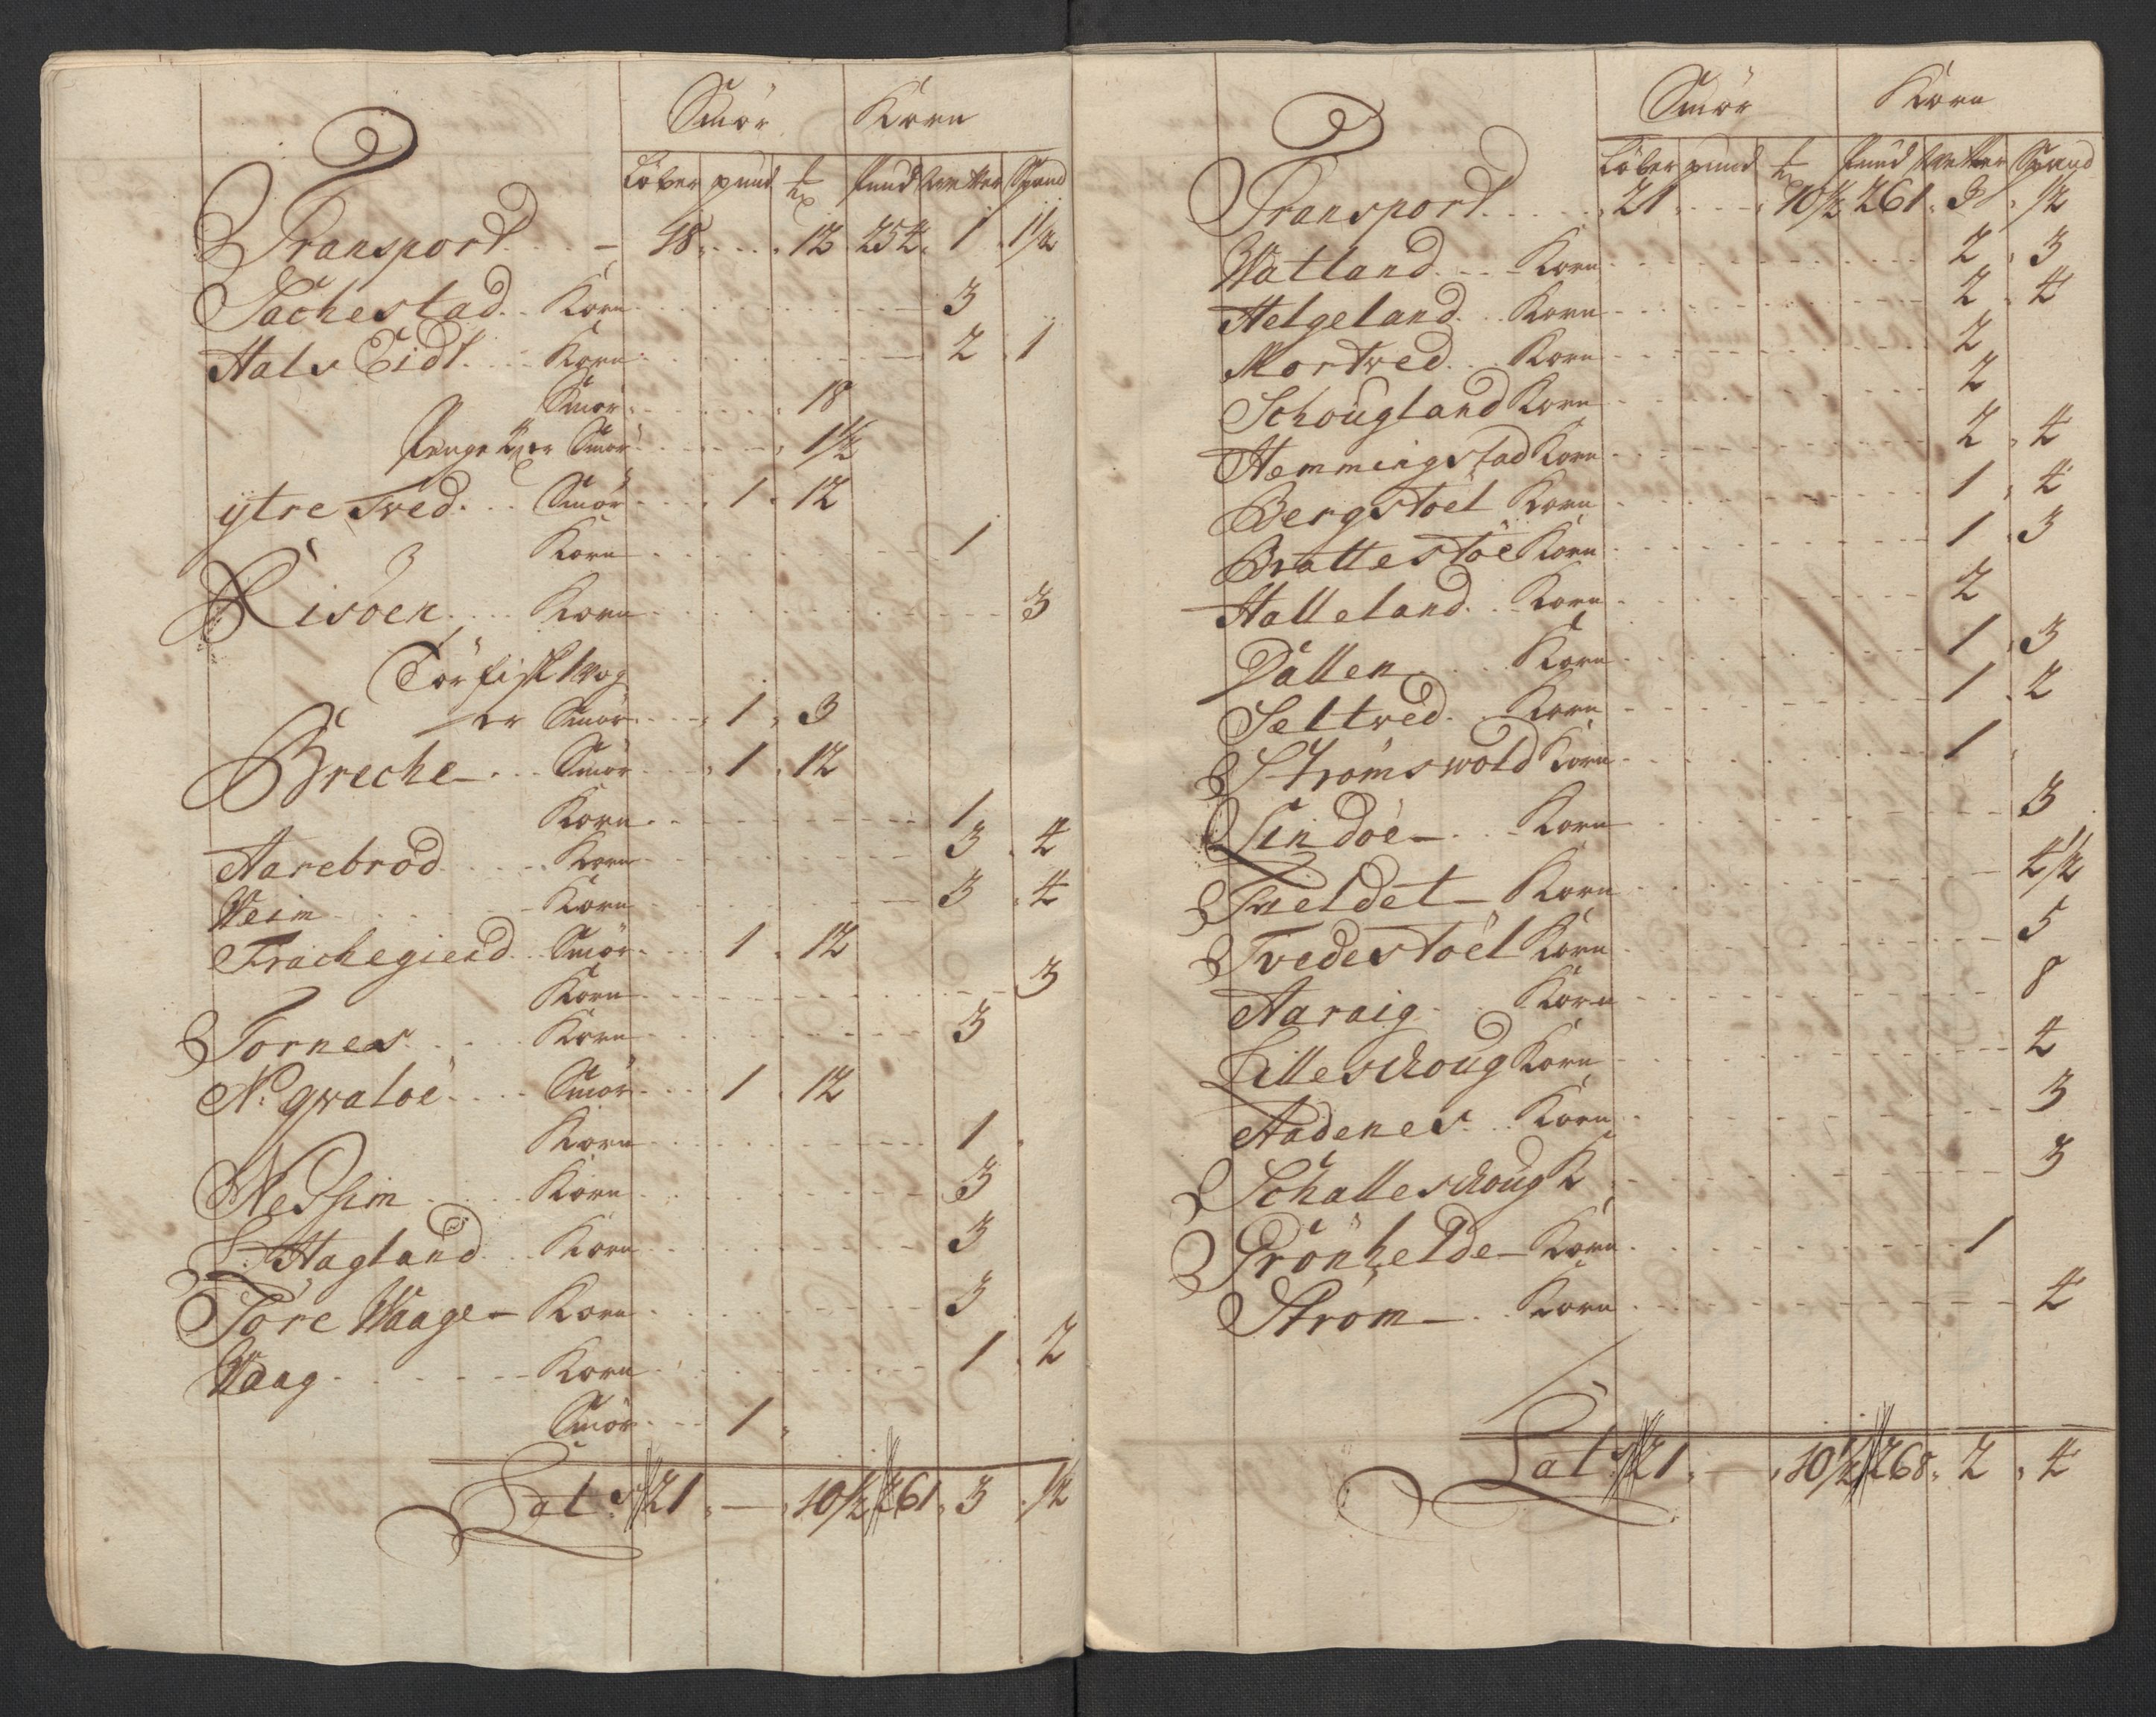 Smör Korn
Löber pund ℔ pund wetter Spand
Transport 18 12 254 1 1½
Sachestad Korn 3
Hals Eidt Korn 2 1
Smör 18
Penge er Smör 1½
ytre Tved Smör 1 12
Korn 1
Risöen Korn 3
Törfisk 1 wog
er Smör 1 3
Breche Smör 1 12
Korn 1
Aarebrod Korn 3 4
Weim Korn 3 4
Frachegierd Smör 1 12
Korn 3
Tornes Korn 3
N: qvalöe Smör 1 12
Korn 1
Nedhim Korn 3
L: Hagland Korn 3
Töre Waage Korn 3
Waag Korn 1 2
Smör 1
Lat: 21 — 10½ 261 3 ½
Smör Korn
Löber pund ℔ pund wetter Spand
Transport 21 10½ 261 3 ½
Watland Korn 2 3
Helgeland Korn 2 4
Mortved Korn 2
Schougland Korn 2
Hemmingstad Korn 2 4
Bergstöel Korn 1 4
Brattestöe Korn 1 3
Halleland Korn 2
Dallen Korn 1 3
Seltved Korn 1 2
Strömswold Korn 1
Lindöe Korn 3
Tveldet Korn 4½
Tvedestöel Korn 5
Aaraig Korn 8
Lilleschoug Korn 4
Aadenes Korn 3
Schalleschoug K 3
Grönhelde Korn 1
Ström Korn 4
Lat: 21 — 10½ 268 2 4